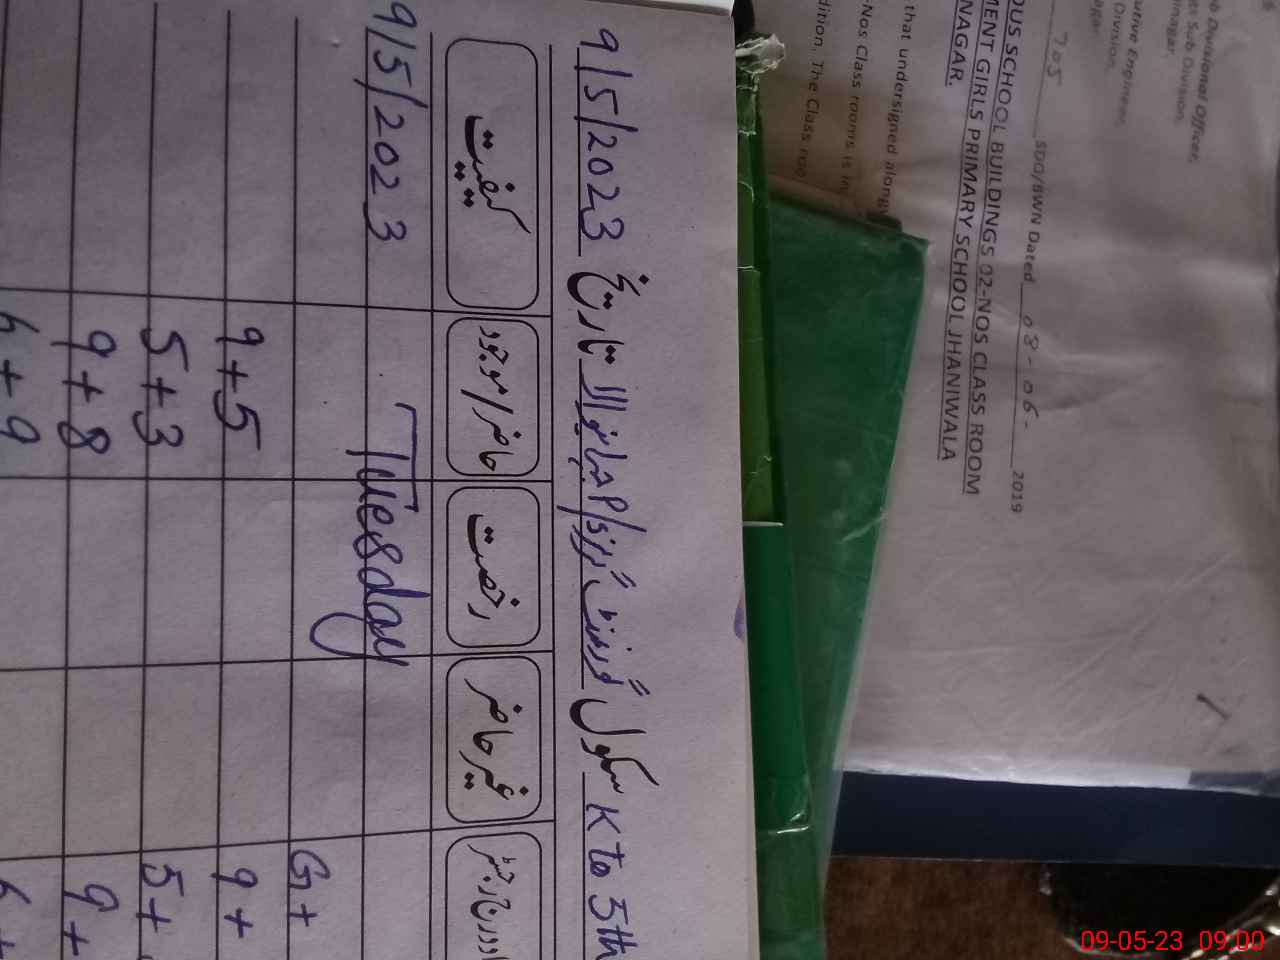 9/5/2023 تاریخ جھانیوالا P/S گورنمنٹ گرلز سکول K to 5th
کیفیت
حاضر/موجود
رخصت
غیر حاضر
9/5/2023
Tuesday
G+
9+5
9+
5+3
5+
9+8
9+
6+9
6+
b Divisional Officer,
Sub Division,
utive Engineer,
Division,
705 SDO/BWN Dated 08-06- 2019
OUS SCHOOL BUILDINGS 02-NOS CLASS ROOM
MENT GIRLS PRIMARY SCHOOL JHANIWALA
NAGAR.
that undersigned along
-Nos Class rooms is in
dition. The Class roo
09-05-23 09:00